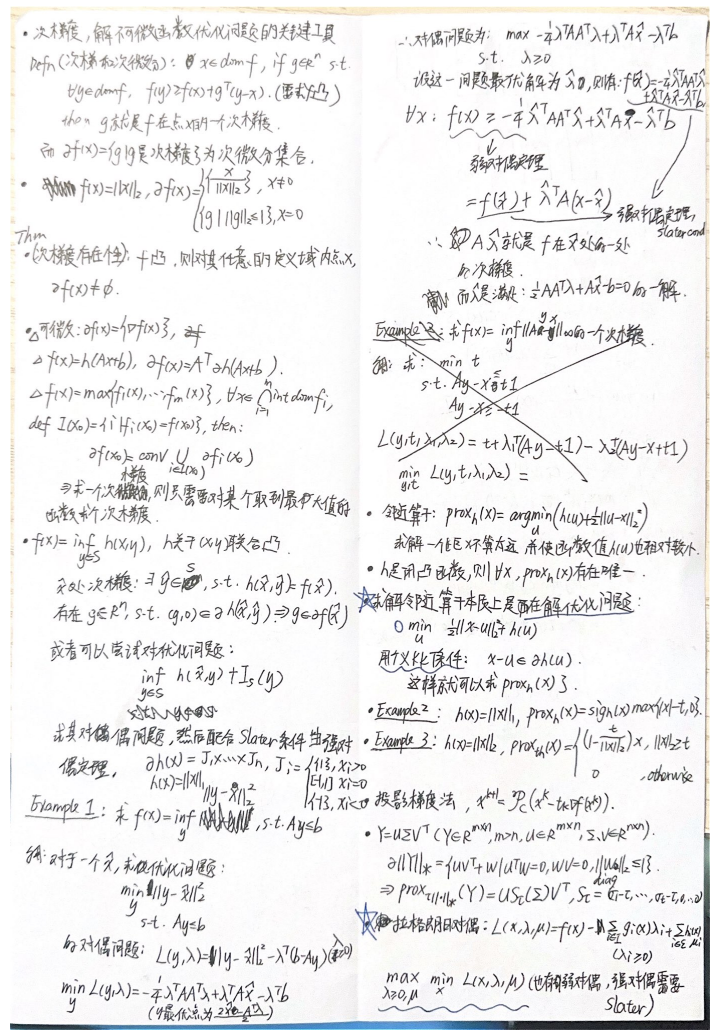 • 次梯度，解不可微函数优化问题的关键工具
Defn(次梯度和次微分)： x∈domf, if g∈Rⁿ s.t.
∀y∈domf, f(y)≥f(x)+gᵀ(y-x). (要求f凸)
then g就是f在点x的一个次梯度.
而 ∂f(x)={g|g是次梯度}为次微分集合.
• f(x)=||x||₂, ∂f(x)={ {x/||x||₂}, x≠0
{g | ||g||₂≤1}, x=0
Thm
• (次梯度存在性): f凸，则对其任意的定义域内点x,
∂f(x)≠∅.
• △可微: ∂f(x)={∇f(x)},
△ f(x)=h(Ax+b), ∂f(x)=Aᵀ∂h(Ax+b).
△ f(x)=max{f₁(x),…,fₘ(x)}, ∀x∈⋂ int domfᵢ,
def I(x₀)={i|fᵢ(x₀)=f(x₀)}, then:
∂f(x₀)=conv ⋃_{i∈I(x₀)} ∂fᵢ(x₀)
⇒求一个次梯度，则只需要对某个取到最大值的
函数求个次梯度.
• f(x)=inf_{y∈S} h(x,y), h关于(x,y)联合凸.
x̂处次梯度: ∃ ŷ∈S, s.t. h(x̂,ŷ)=f(x̂).
存在 g∈Rⁿ, s.t. (g,0)∈∂h(x̂,ŷ)⇒g∈∂f(x̂)
或者可以尝试对优化问题:
inf_{y∈S} h(x̂,y)+I_S(y)
求其对偶问题，然后配合Slater条件 强对
偶定理.
∂h(x)=J₁×…×Jₙ, Jᵢ={ {1}, xᵢ>0
h(x)=||x||₁ [-1,1] xᵢ=0
{-1}, xᵢ<0
Example 1: 求 f(x)=inf_y ||y-x||₂², s.t. Ay≤b
解: 对于一个x̂, 求优化问题:
min_y ||y-x̂||₂²
s.t. Ay≤b
的对偶问题: L(y,λ)=||y-x̂||₂²-λᵀ(b-Ay) (λ≥0)
min_y L(y,λ)=-¼λᵀAAᵀλ+λᵀAx̂-λᵀb
(y最优点为 (2x̂-Aᵀλ)/2)
∴对偶问题为: max -¼λᵀAAᵀλ+λᵀAx̂-λᵀb
s.t. λ≥0
设这一问题最优解为λ̂, 则有: f(x̂)=-¼λ̂ᵀAAᵀλ̂
+λ̂ᵀAx̂-λ̂ᵀb
∀x: f(x) ≥ -¼λ̂ᵀAAᵀλ̂+λ̂ᵀAx-λ̂ᵀb
弱对偶定理
=f(x̂)+λ̂ᵀA(x-x̂)
强对偶定理,
Slater cond
∴ Aλ̂就是f在x̂处的一处
的次梯度.
而λ̂是满足: ½AAᵀλ+Ax̂-b=0的一解.
Example 2: 求f(x)=inf_y ||Ay-x||∞的一个次梯度.
解: 求: min t
s.t. Ay-x≤t1
Ay-x≥-t1
L(y,t,λ₁,λ₂)=t+λ₁ᵀ(Ay-t1)-λ₂ᵀ(Ay-x+t1)
min_{y,t} L(y,t,λ₁,λ₂)=
• 邻近算子: prox_h(x)=argmin_u(h(u)+½||u-x||₂²)
求解一个距x不算太远,并使函数值h(u)也相对较小.
• h是闭凸函数,则∀x, prox_h(x)存在唯一.
☆求解邻近算子本质上是在解优化问题:
min_u ½||x-u||₂²+h(u)
用KKT条件: x-u∈∂h(u).
这样就可以求prox_h(x)了.
• Example 2: h(x)=||x||₁, prox_h(x)=sign(x)max{|x|-t,0}.
• Example 3: h(x)=||x||₂, prox_{th}(x)={ (1-t/||x||₂)x, ||x||₂≥t
0, otherwise
• 投影梯度法, xᵏ⁺¹=P_C(xᵏ-t_k∇f(xᵏ)).
• Y=UΣVᵀ (Y∈R^{m×n}, m>n, U∈R^{m×n}, Σ,V∈R^{n×n}).
∂||Y||_*={UVᵀ+W|UᵀW=0, WV=0, ||W||₂≤1}.
⇒prox_{τ||·||_*}(Y)=US_τ(Σ)Vᵀ, S_τ=diag(σ₁-τ,…,σ_t-τ,0,…0)
☆•拉格朗日对偶: L(x,λ,μ)=f(x)-∑_{i∈I} gᵢ(x)λᵢ+∑_{i∈E} hᵢ(x)μᵢ
(λᵢ≥0)
max_{λ≥0,μ} min_x L(x,λ,μ) (也有弱对偶, 强对偶需要
Slater)